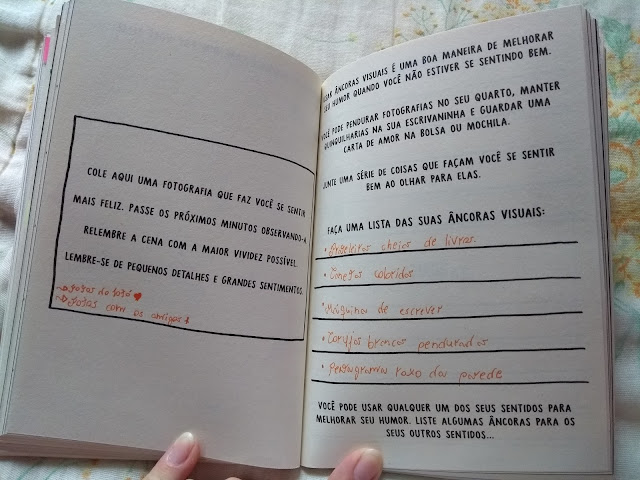 COLE AQUI UMA FOTOGRAFIA QUE FAZ VOCÊ SE SENTIR
MAIS FELIZ. PASSE OS PRÓXIMOS MINUTOS OBSERVANDO-A.
RELEMBRE A CENA COM A MAIOR VIVIDEZ POSSÍVEL.
LEMBRE-SE DE PEQUENOS DETALHES E GRANDES SENTIMENTOS.
→ fotos do totó ♥
→ fotos com os amigos
USAR ÂNCORAS VISUAIS É UMA BOA MANEIRA DE MELHORAR
SEU HUMOR QUANDO VOCÊ NÃO ESTIVER SE SENTINDO BEM.
VOCÊ PODE PENDURAR FOTOGRAFIAS NO SEU QUARTO, MANTER
QUINQUILHARIAS NA SUA ESCRIVANINHA E GUARDAR UMA
CARTA DE AMOR NA BOLSA OU MOCHILA.
JUNTE UMA SÉRIE DE COISAS QUE FAÇAM VOCÊ SE SENTIR
BEM AO OLHAR PARA ELAS.
FAÇA UMA LISTA DAS SUAS ÂNCORAS VISUAIS:
• Prateleiras cheias de livros.
• Canetas coloridas
• Máquina de escrever
• brancos pendurados
• Pentagrama roxo da parede
VOCÊ PODE USAR QUALQUER UM DOS SEUS SENTIDOS PARA
MELHORAR SEU HUMOR. LISTE ALGUMAS ÂNCORAS PARA OS
SEUS OUTROS SENTIDOS...